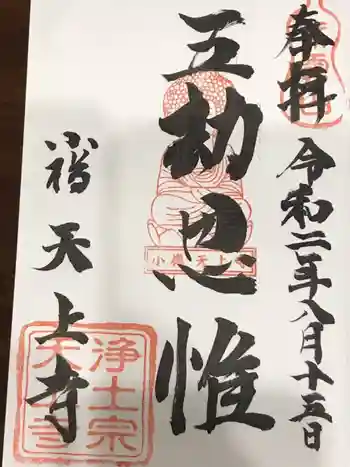 奉拝
令和二年八月十五日
五劫思惟
小嶺天上寺
小嶺天上寺
浄土宗
天上寺